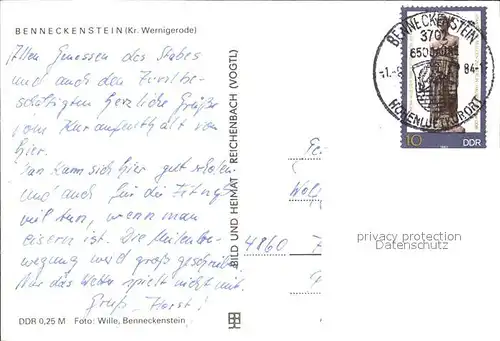 BENNECKENSTEIN (Kr. Wernigerode)
Allen Genossen des Stabes
und auch den Zivilbe-
schäftigten herzliche Grüße
vom Kuraufenthalt von
hier.
Man kann sich hier gut erholen
und auch für die Fitneß
viel tun, wenn man
eisern ist. Die Meilenbe-
wegung wird groß geschrieb.
Nur das Wetter spielt nicht mit.
Gruß Horst!
DDR 0,25 M Foto: Wille, Benneckenstein
BILD UND HEIMAT REICHENBACH (VOGTL)
BENNECKENSTEIN
3702
650 JAHRE
-1.
84-
HÖHENLUFTKURORT
10
DDR
4860
privacy protection
Datenschutz